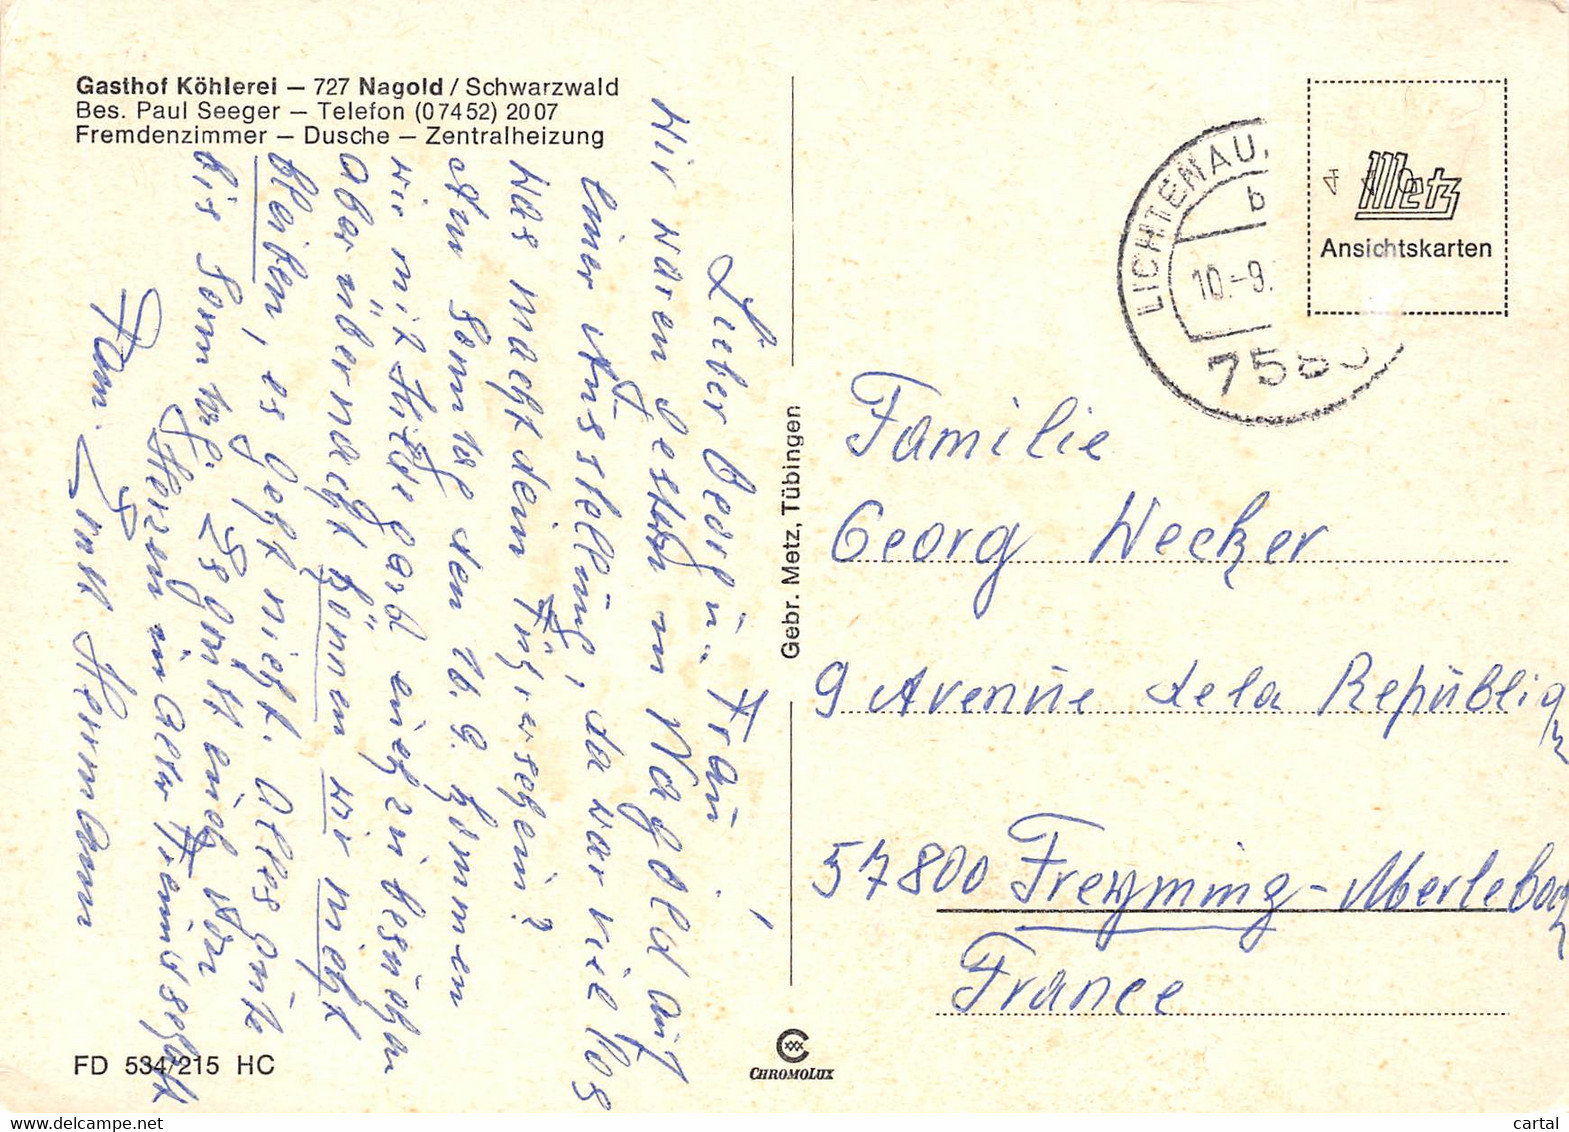 Gasthof Köhlerei – 727 Nagold / Schwarzwald
Bes. Paul Seeger – Telefon (07452) 2007
Fremdenzimmer – Dusche – Zentralheizung
Lieber Georg u. Frau,
Wir waren gestern in Nagold auf
einer Ausstellung, da war viel los
Was macht dein
Am Sonntag den 16.9. kommen
wir mit Hildegard euch zu besuchen
Aber übernacht können wir nicht
bleiben, es geht nicht. Alles gute
bis Sonntag. Es grüßt euch von
Herzen in alter Freundschaft
Fam. Ernst Hermann
Gebr. Metz, Tübingen
LICHTENAU,
b
10.-9.
Metz
Ansichtskarten
Familie
Georg Wecker
9 Avenue de la Republiq
57800 Freyming-Merlebach
France
FD 534/215 HC
CHROMOLUX
www.delcampe.net
cartal